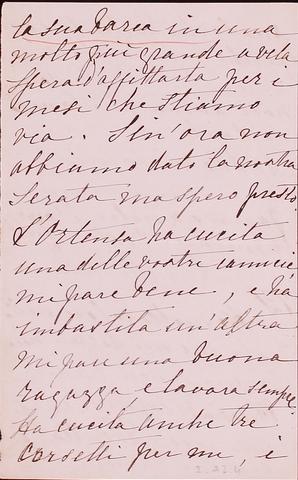 la sua barca in una
molto più grande a vela
spera d'affittarla per i
mesi che stiamo
via. Sin'ora non
abbiamo dato la nostra
serata ma spero presto
L'Ortensa ha cucita
una delle vostre camicie
mi pare bene, e ha
imbastita un'altra
Mi pare una buona
ragazza, e lavora sempre.
Ha cucita anche tre
corsetti per me, e